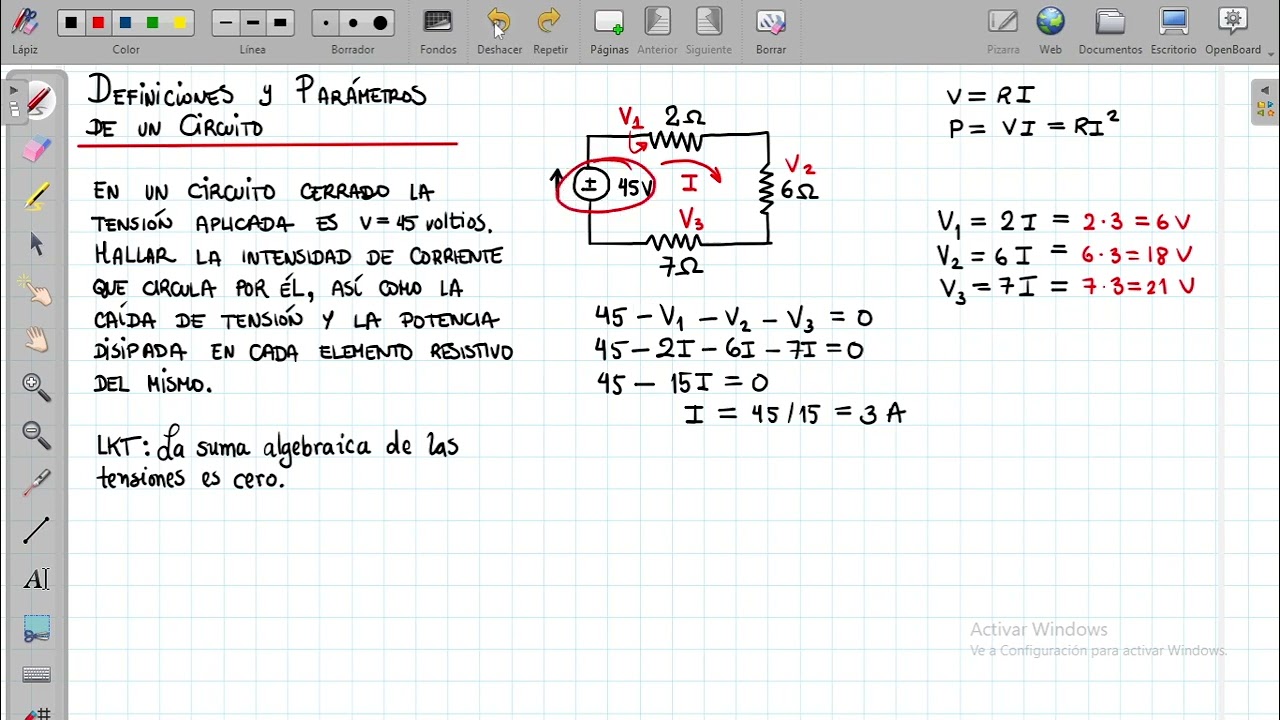 Lápiz
Color
Línea
Borrador
Fondos
Deshacer
Repetir
Páginas
Anterior
Siguiente
Borrar
Pizarra
Web
Documentos
Escritorio
OpenBoard
DEFINICIONES Y PARÁMETROS
DE UN CIRCUITO
EN UN CIRCUITO CERRADO LA
TENSIÓN APLICADA ES V = 45 voltios.
HALLAR LA INTENSIDAD DE CORRIENTE
QUE CIRCULA POR ÉL, ASÍ COMO LA
CAÍDA DE TENSIÓN Y LA POTENCIA
DISIPADA EN CADA ELEMENTO RESISTIVO
DEL MISMO.
LKT: La suma algebraica de las
tensiones es cero.
V1 2Ω
± 45V I
V2
6Ω
V3
7Ω
45 - V1 - V2 - V3 = 0
45 - 2I - 6I - 7I = 0
45 - 15I = 0
I = 45/15 = 3 A
V = RI
P = VI = RI²
V1 = 2I = 2·3 = 6 V
V2 = 6I = 6·3 = 18 V
V3 = 7I = 7·3 = 21 V
AI
Activar Windows
Ve a Configuración para activar Windows.